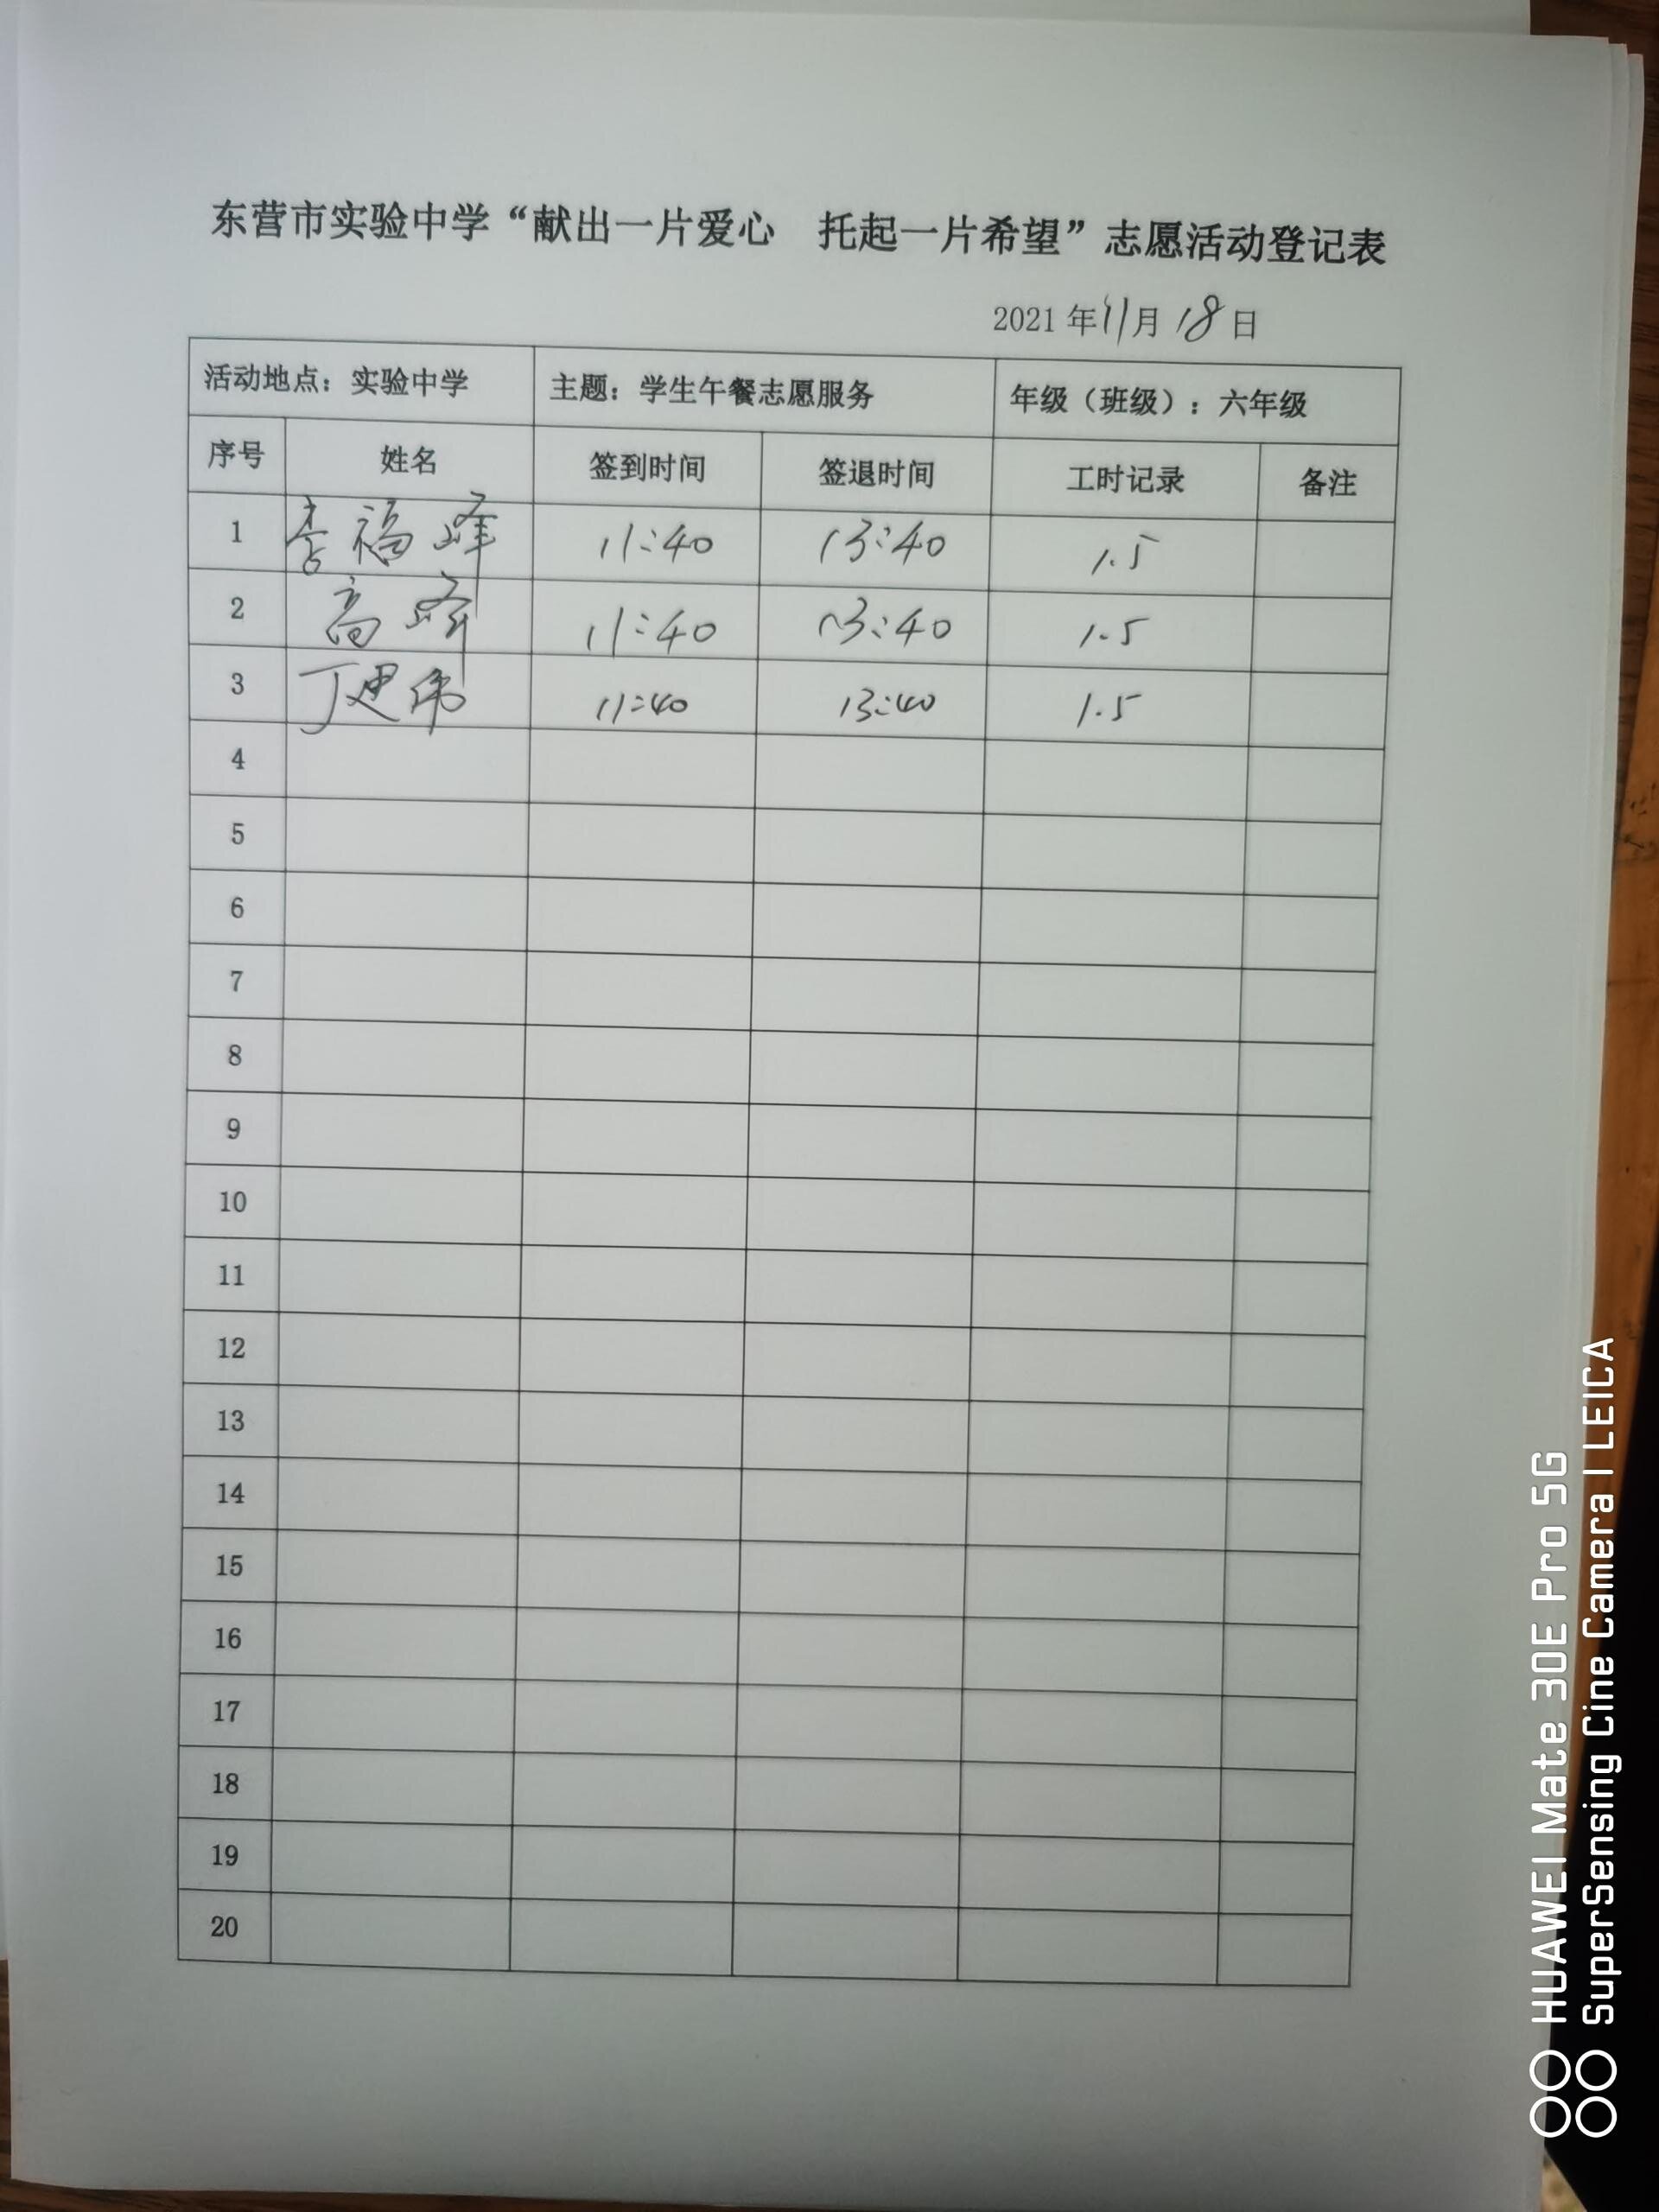 东营市实验中学“献出一片爱心 托起一片希望”志愿活动登记表
2021年11月18日
活动地点：实验中学 主题：学生午餐志愿服务 年级（班级）：六年级
序号 姓名 签到时间 签退时间 工时记录 备注
1 李福峰 11:40 13:40 1.5
2 高峰 11:40 13:40 1.5
3 丁建伟 11:40 13:40 1.5
4
5
6
7
8
9
10
11
12
13
14
15
16
17
18
19
20
HUAWEI Mate 30E Pro 5G
SuperSensing Cine Camera | LEICA